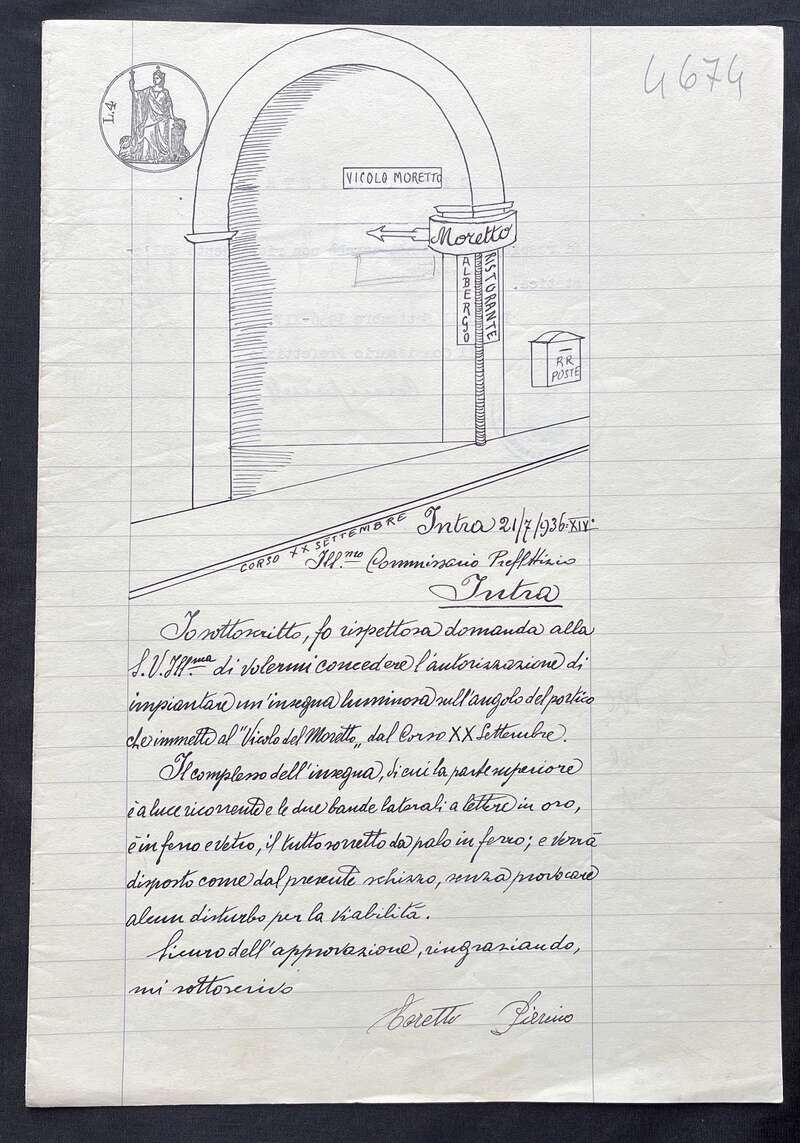 4674
L.4
VICOLO MORETTO
Moretto
ALBERGO
RISTORANTE
RR
POSTE
CORSO XX SETTEMBRE
Intra 21/7/936.XIV.
Ill.mo Commissario Preffttizio
Intra
Io sottoscritto, fo rispettosa domanda alla
S.V. Ill.ma di volermi concedere l'autorizzazione di
impiantare un'insegna luminosa sull'angolo del portico
che immette al "Vicolo del Moretto„ dal Corso XX Settembre.
Il complesso dell'insegna, di cui la parte superiore
è a luce ricorrente e le due bande laterali a lettere in oro,
è in ferro e vetro, il tutto sorretto da palo in ferro; e verrà
disposto come dal presente schizzo, senza provocare
alcun disturbo per la viabilità.
Sicuro dell'approvazione, ringraziando,
mi sottoscrivo
Moretto Pierino